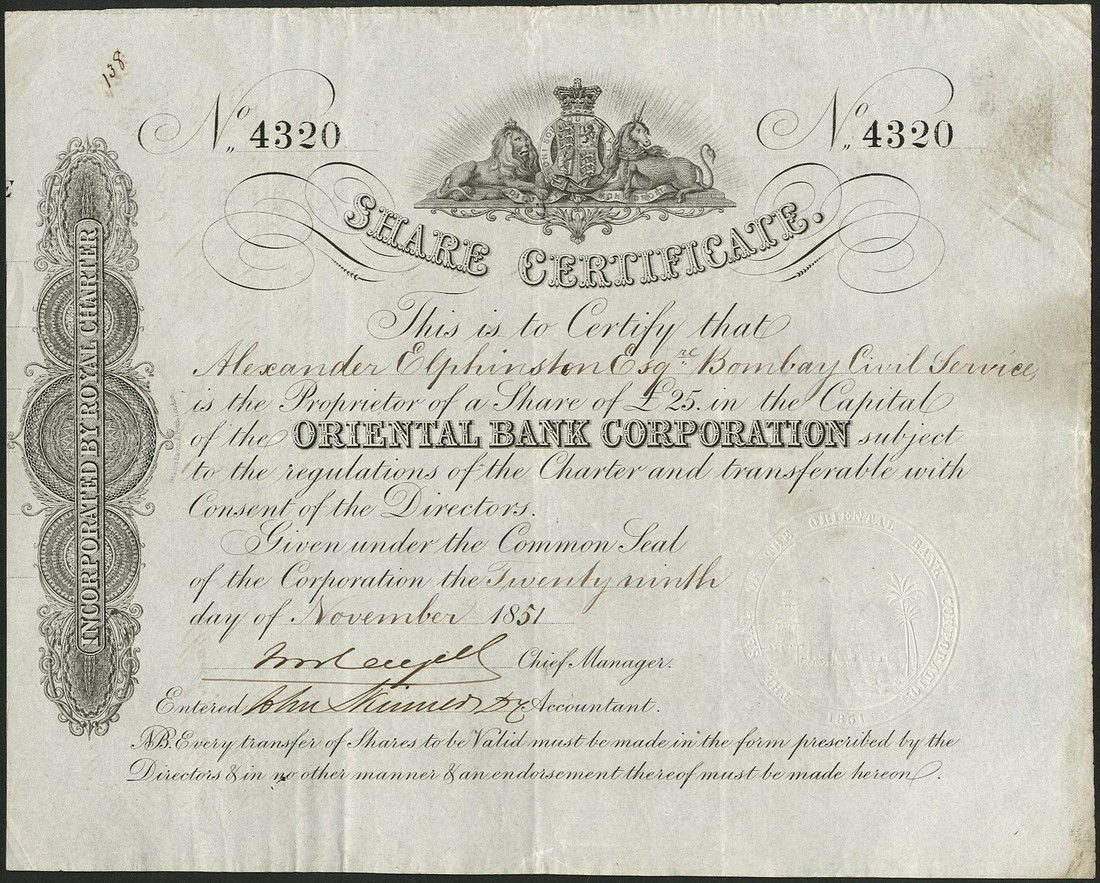 138
No 4320
No 4320
SHARE CERTIFICATE.
INCORPORATED BY ROYAL CHARTER
This is to Certify that
Alexander Elphinston Esqre Bombay Civil Service
is the Proprietor of a Share of £25. in the Capital
of the ORIENTAL BANK CORPORATION subject
to the regulations of the Charter and transferable with
Consent of the Directors.
Given under the Common Seal
of the Corporation the Twenty ninth
day of November 1851
Chief Manager.
Entered John Skinner Accountant.
NB. Every transfer of Shares to be Valid must be made in the form prescribed by the
Directors & in no other manner & an endorsement thereof must be made hereon.
THE SEAL OF THE ORIENTAL BANK CORPORATION
1851